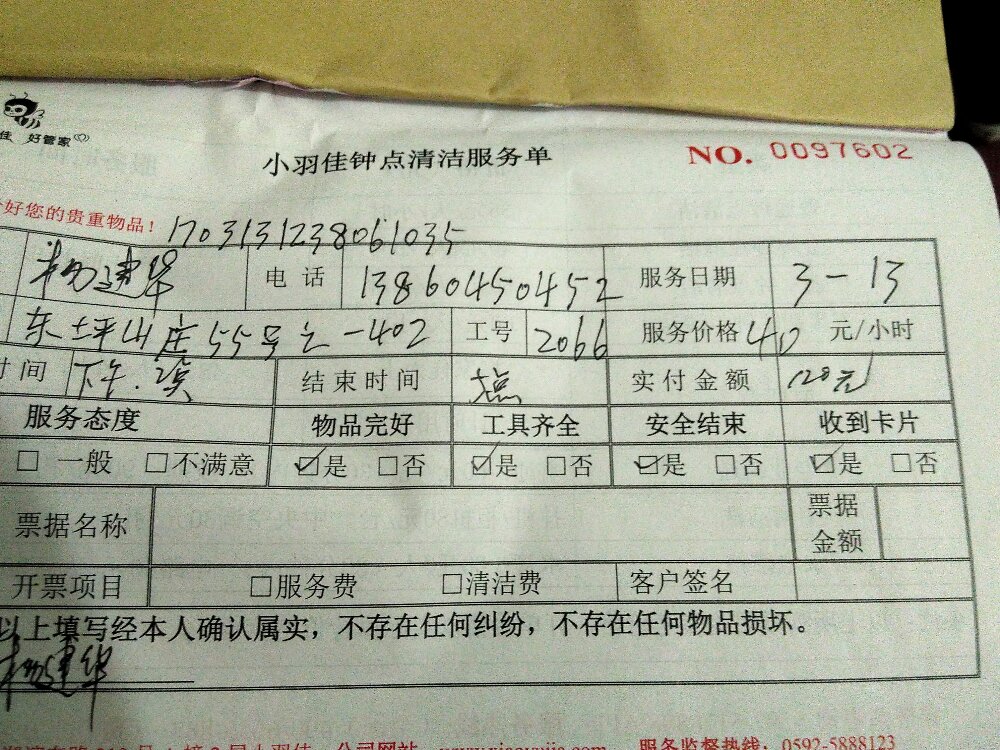 佳 好管家
小羽佳钟点清洁服务单
NO. 0097602
好您的贵重物品!
170313123806 1035
杨建华 电话 13860450452 服务日期 3-13
东坪山庄55号之一402 工号 2066 服务价格 40 元/小时
时间 下午 结束时间 实付金额 120元
服务态度 物品完好 工具齐全 安全结束 收到卡片
□ 一般 □不满意 ☑是 □否 ☑是 □否 ☑是 □否 ☑是 □否
票据名称 票据金额
开票项目 □服务费 □清洁费 客户签名
以上填写经本人确认属实，不存在任何纠纷，不存在任何物品损坏。
杨建华
小羽佳 公司网站 www.xiaoyujia.com 服务监督热线：0592-5888123